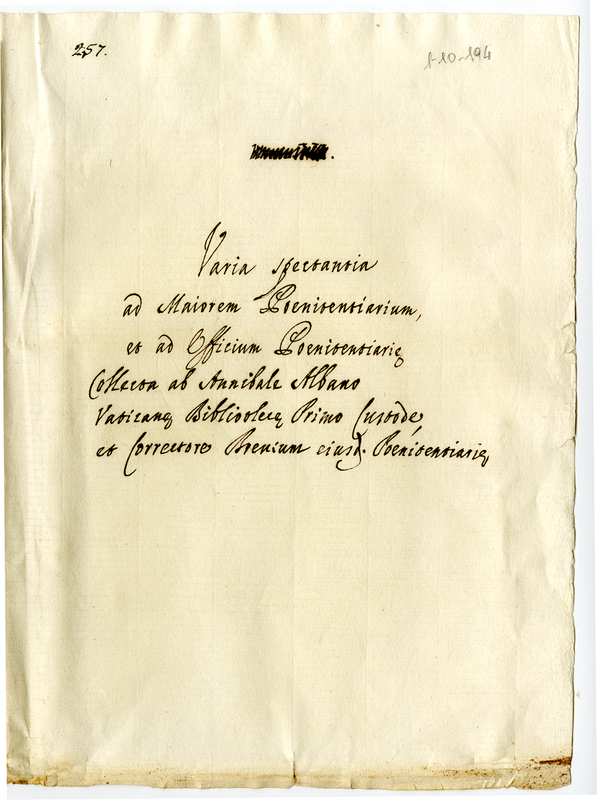 257.
1-10-194
Varia spectantia
ad Maiorem Poenitentiarium,
et ad Officium Poenitentiarię
Collecta ab Annibale Albano
Vaticanę Bibliotecę Primo Custode,
et Correctore Brevium eiusd. Poenitentiarię